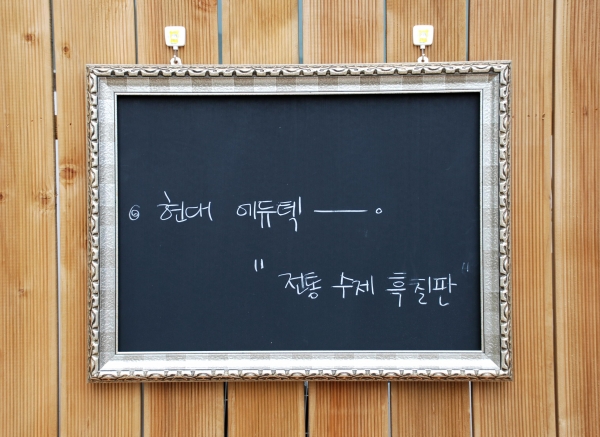 ◎ 현대 에듀텍 ——。
" 전통 수제 흑칠판 "